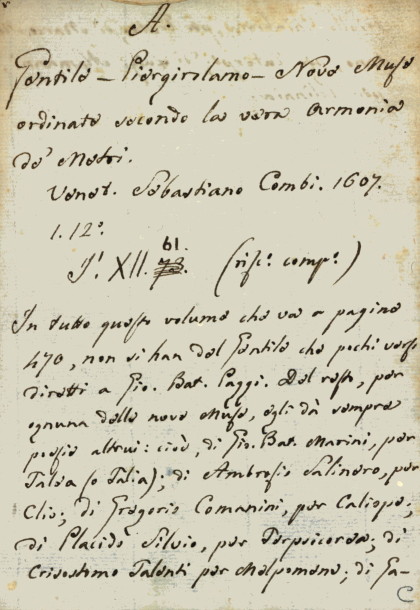 A.
Gentile - Piergirolamo - Nove Muse
ordinate secondo la vera Armonia
de' Metri.
Venet. Sebastiano Combi. 1607.
1. 12°.
61.
I.' XII. 73. (risc.° comp.°)
In tutto questo volume che va a pagine
470, non si han del Gentile che pochi versi
diretti a Gio. Bat. Paggi. Del resto, per
ognuna delle nove Muse, egli dà sempre
poesie altrui: cioè, di Gio. Bat. Marini, per
Talèa (o Talia); di Ambrosio Salinero, per
Clio; di Gregorio Comanini, per Caliope;
di Placido Silvio, per Terpsicorea; di
Crisostimo Talenti per Melpomene; di Ga-